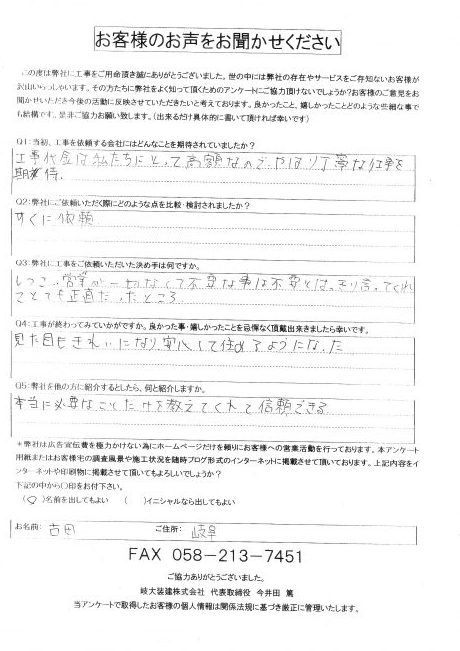 お客様のお声をお聞かせください
この度は弊社に工事をご用命頂き誠にありがとうございました。世の中には弊社の存在やサービスをご存知ないお客様が
沢山いらっしゃいます。その方たちに弊社をよく知って頂くためのアンケートにご協力頂けないでしょうか?お客様のご意見をお
聞かせいただき今後の活動に反映させていただきたいと考えております。良かったこと、嬉しかったことどのような些細な事で
も結構です。是非ご協力お願い致します。(出来るだけ具体的に書いて頂ければ幸いです)
Q1:当初、工事を依頼する会社にはどんなことを期待されていましたか?
工事代金は私たちにとって高額なので、やはり丁寧な仕事を
期待。
Q2:弊社にご依頼いただく際にどのような点を比較・検討されましたか?
すぐに依頼
Q3:弊社に工事をご依頼いただいた決め手は何ですか。
しつこい営業が一切なくて不要な事は不要とはっきり言ってくれ
とても正直だったところ
Q4:工事が終わってみていかがですか。良かった事・嬉しかったことを忌憚なく頂戴出来きましたら幸いです。
見た目もきれいになり、安心して住めるようになった
Q5:弊社を他の方に紹介するとしたら、何と紹介しますか。
本当に必要なことだけを教えてくれて信頼できる
*弊社は広告宣伝費を極力かけない為にホームページだけを頼りにお客様への営業活動を行っております。本アンケート
用紙またはお客様宅の調査風景や施工状況を随時ブログ形式のインターネットに掲載させて頂いております。上記内容をイ
ンターネットや印刷物に掲載させて頂いてもよろしいでしょうか?
下記の中から〇印をお付下さい。
(〇)名前を出してもよい ( )イニシャルなら出してもよい
お名前: 古田 ご住所: 岐阜
FAX 058-213-7451
ご協力ありがとうございました。
岐大装建株式会社 代表取締役 今井田 篤
当アンケートで取得したお客様の個人情報は関係法規に基づき厳正に管理いたします。